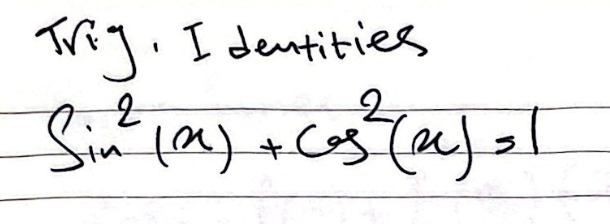 Trig. Identities
Sin²(x) + Cos²(x) = 1